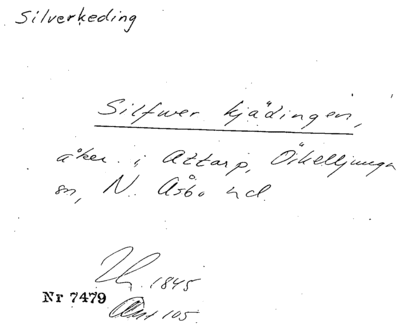 Silverkeding
Silfwer kjädingen,
åker i Attarp, Örkelljunga
sn, N. Åsbo hd.
1845
Nr 7479
Akt 105